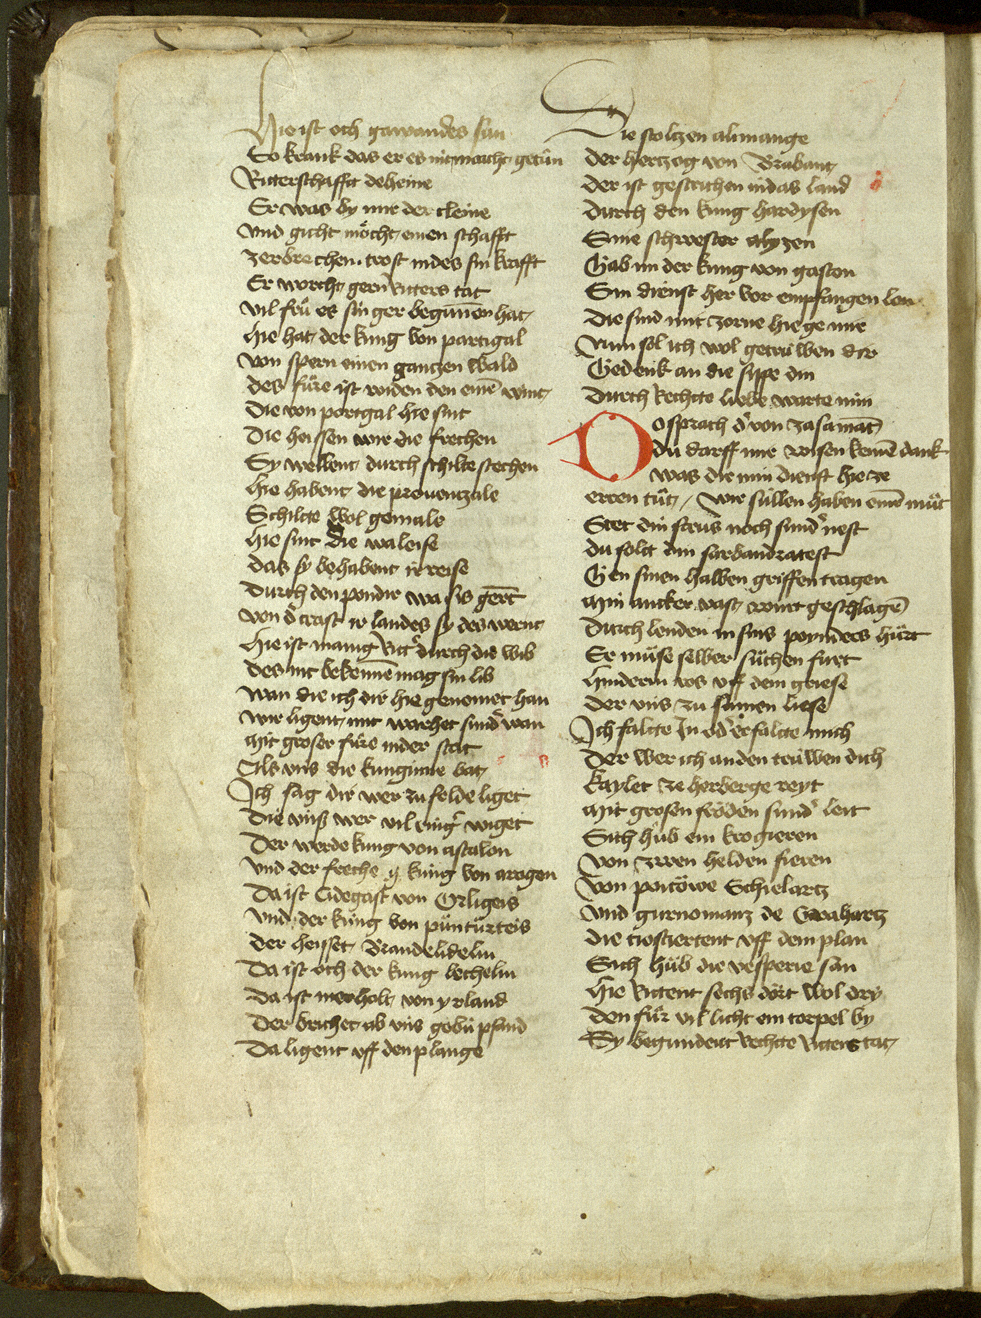 Hie ist och gawandes sún
So krank das er es nit macht getún
Ritterschafft deheine
Er was by mir der cleine
Vnd gicht mo̊cht einen schafft
zerbrechen. trost in des sin krafft
Er worcht gern ritters tat
vil frů es sin ger begunnen hat
hie hat der kúng von partigal
von spern einen ganczen wald
des fůre ist wíden den einē wint
die von portgal hie sint
die heissen wir die frechen
Sy wellent durch schilte stechen
hie habent die prouentzale
Schilte wol gemale
hie sint die waleise
das sy behabent ir reise
durch den pondir wa sis gert
von d' crafft ir landes sy des wernt
hie ist mang ritt' durch die wib
des nit bekennē mag sin lib
wan die ich dir hie genemet han
wir ligent mit warhet sund' wan
Mit groser fůre in der stat
Als vns die kúnginne bat
Ich sag dir wer zu felde liget
die vnß wer vil ring' wiget
der werde kúng von ascalon
vnd der freche kúng von aragon
Da ist Cidegast von Orligeis
vnd der kúng von púntúrteis
der heisset Brandelidelin
Da ist och der kúng lechelin
Da ist morholt von yrland
der brichet ab vns gebú pfand
Da ligent vff den plange
Die stoltzen alimange
der hertzog von Brabant
der ist gestrichen in das land
durch den kúng hardysen
Sine schwester alyzen
Gab im der kúng von gascon
Sin dienst her vor empfangen lon
die sind mit zorne hie gegē mir
Nun sol ich wol getrúwen dir
Gedenk an die sippe din
durch rechte liebe warte min
DO sprach d' von zasamātz
du darff mir wisen keinē dank
was die min dienst hie ze
eren tůt / wir súllen haben einē můt
Stet din strus noch sund' nest
du solt din sarbandratest
Gen sinen halben griffen tragen
Min ancker vast wirt geschlagē
durch lenden in sins poynders hurt
Er můse selber sůchen furt
hinderm ros vff dem griese
der vns zu samen liese
Ich falte In od' er falte mich
der wer ich an den trúwen dich
kaylet ze herberge reyt
Mit grosen fröden sund' leit
Sich hůb ein krogieren
von zwen helden fieren
von poitöwe Schielartz
Vnd gurnomanz de Grahartz
die tiostiertent vff dem plan
Sich hůb die vesperie san
hie rittent sechs dört wol dry
den fůr vil licht ein torpel by
Sy begundent rechte ritters tat